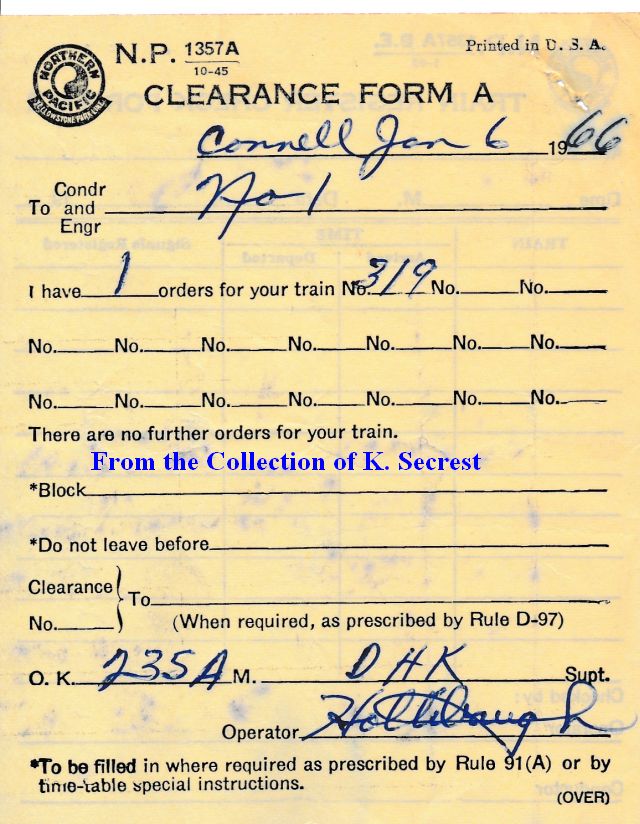 NORTHERN PACIFIC YELLOWSTONE PARK LINE
N.P. 1357A
10-45
Printed in U. S. A.
CLEARANCE FORM A
Connell Jan 6 1966
To Condr and Engr No 1
I have 1 orders for your train No. 319 No. No.
No. No. No. No. No. No. No.
No. No. No. No. No. No. No.
There are no further orders for your train.
From the Collection of K. Secrest
*Block
*Do not leave before
Clearance
No. } To
(When required, as prescribed by Rule D-97)
O. K. 235A M. DHK Supt.
Operator
*To be filled in where required as prescribed by Rule 91(A) or by
time-table special instructions.
(OVER)